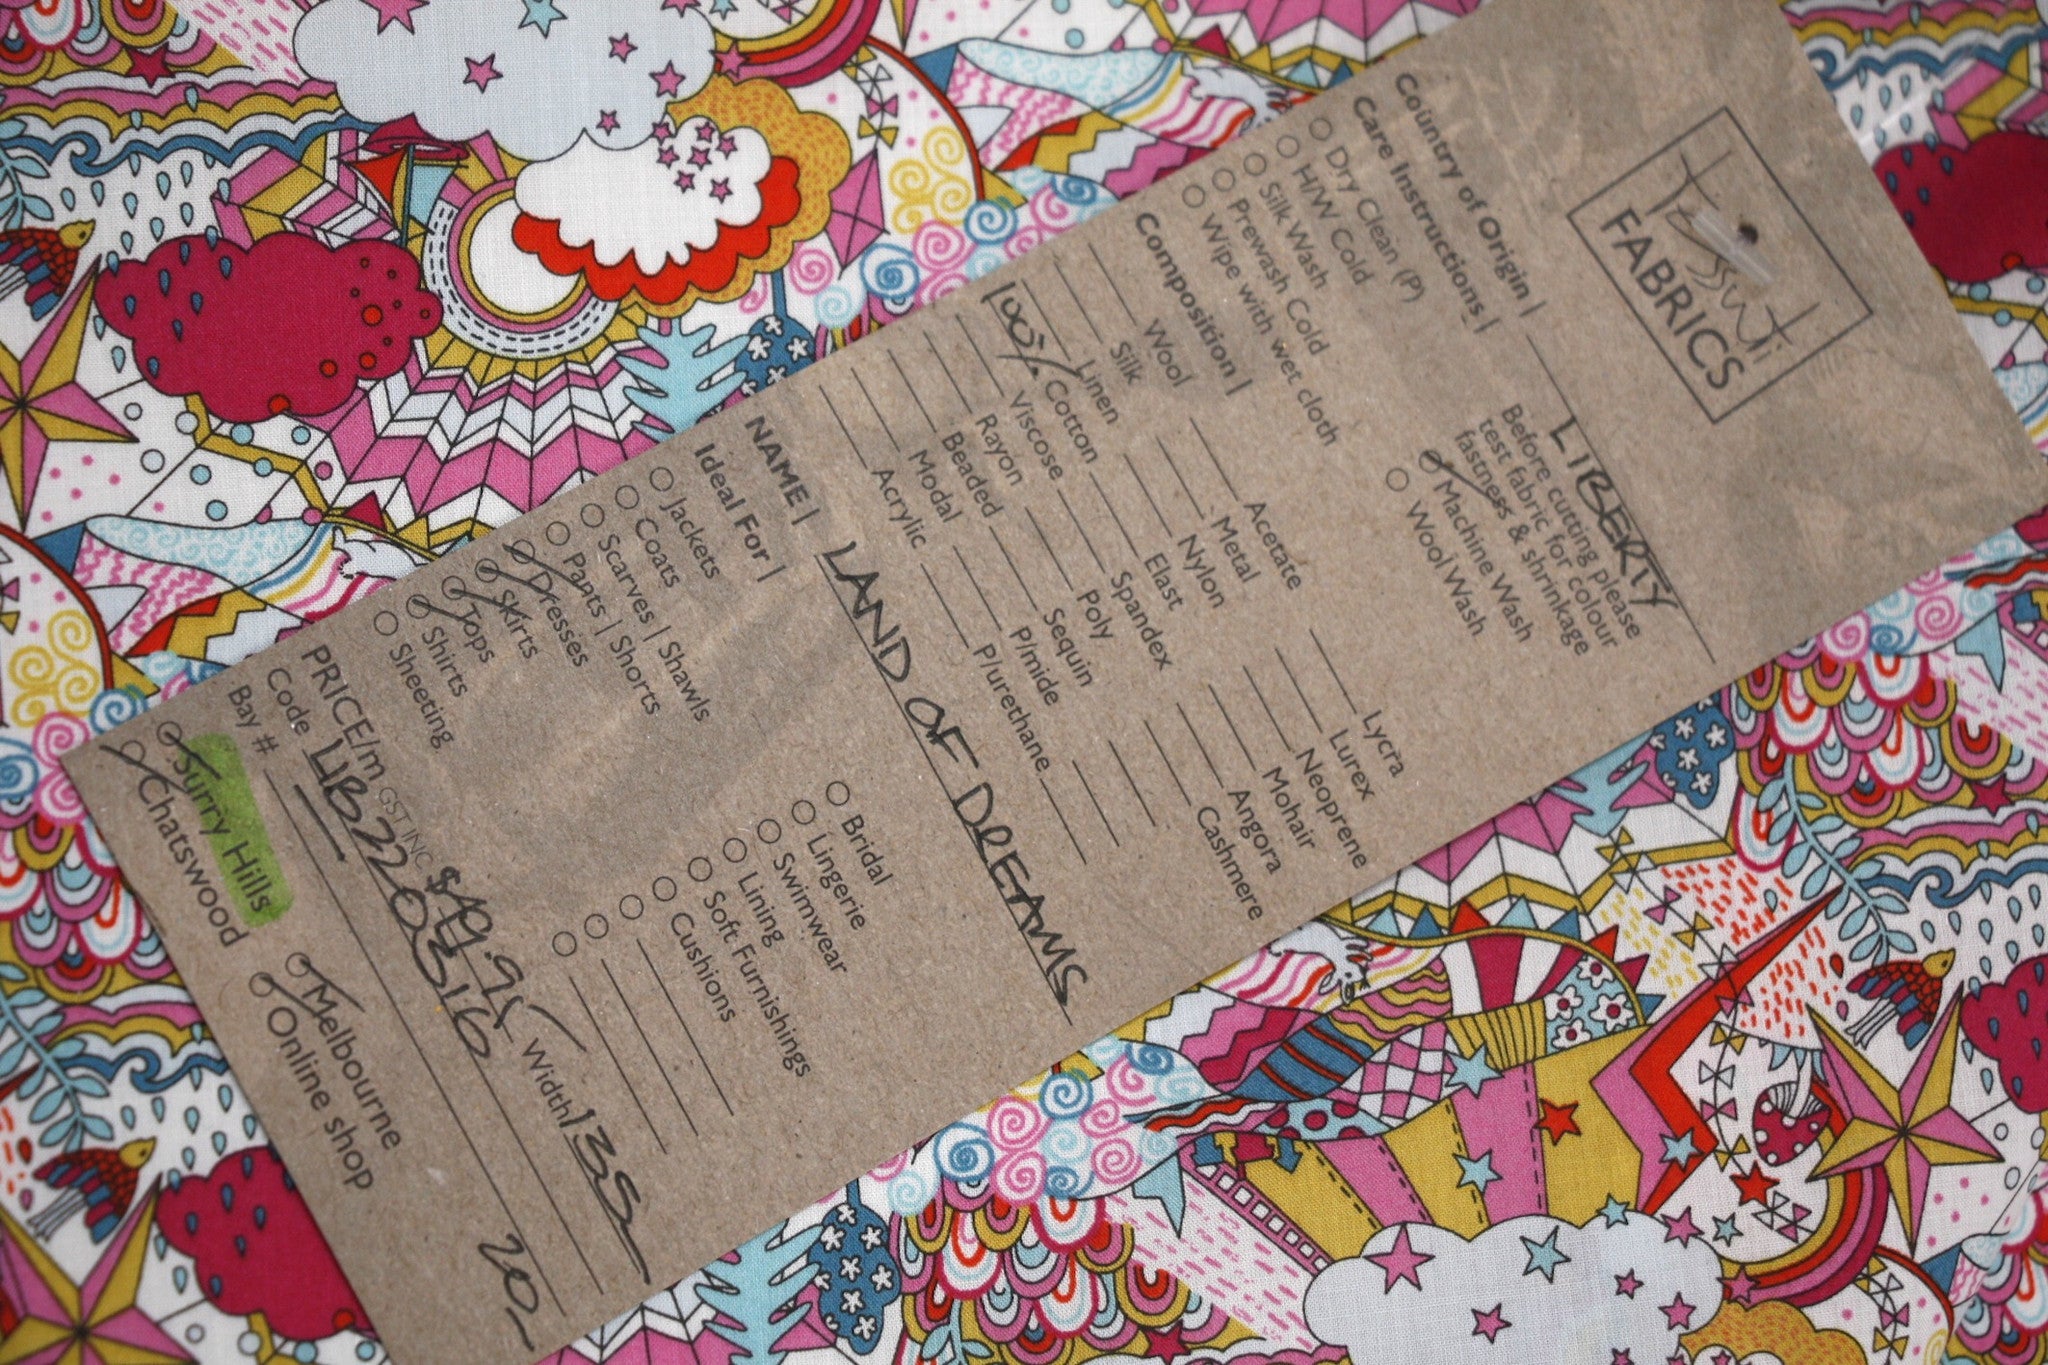 Tessuti
FABRICS
Country of Origin | LIBERTY
Care Instructions |
Dry Clean (P)
H/W Cold
Silk Wash
Prewash Cold
Wipe with wet cloth
Before cutting please
test fabric for colour
fastness & shrinkage
Machine Wash
Wool Wash
Composition |
Wool
Silk
Linen
100% Cotton
Viscose
Rayon
Beaded
Modal
Acrylic
Acetate
Metal
Nylon
Elast
Spandex
Poly
Sequin
P/mide
P/urethane
Lycra
Lurex
Neoprene
Mohair
Angora
Cashmere
NAME | LAND OF DREAMS
Ideal For |
Jackets
Coats
Scarves | Shawls
Pants | Shorts
Dresses
Skirts
Tops
Shirts
Sheeting
Bridal
Lingerie
Swimwear
Lining
Soft Furnishings
Cushions
PRICE/m GST INC $49.95 Width 135
Code LIB220316 20
Bay #
Surry Hills
Chatswood
Melbourne
Online shop